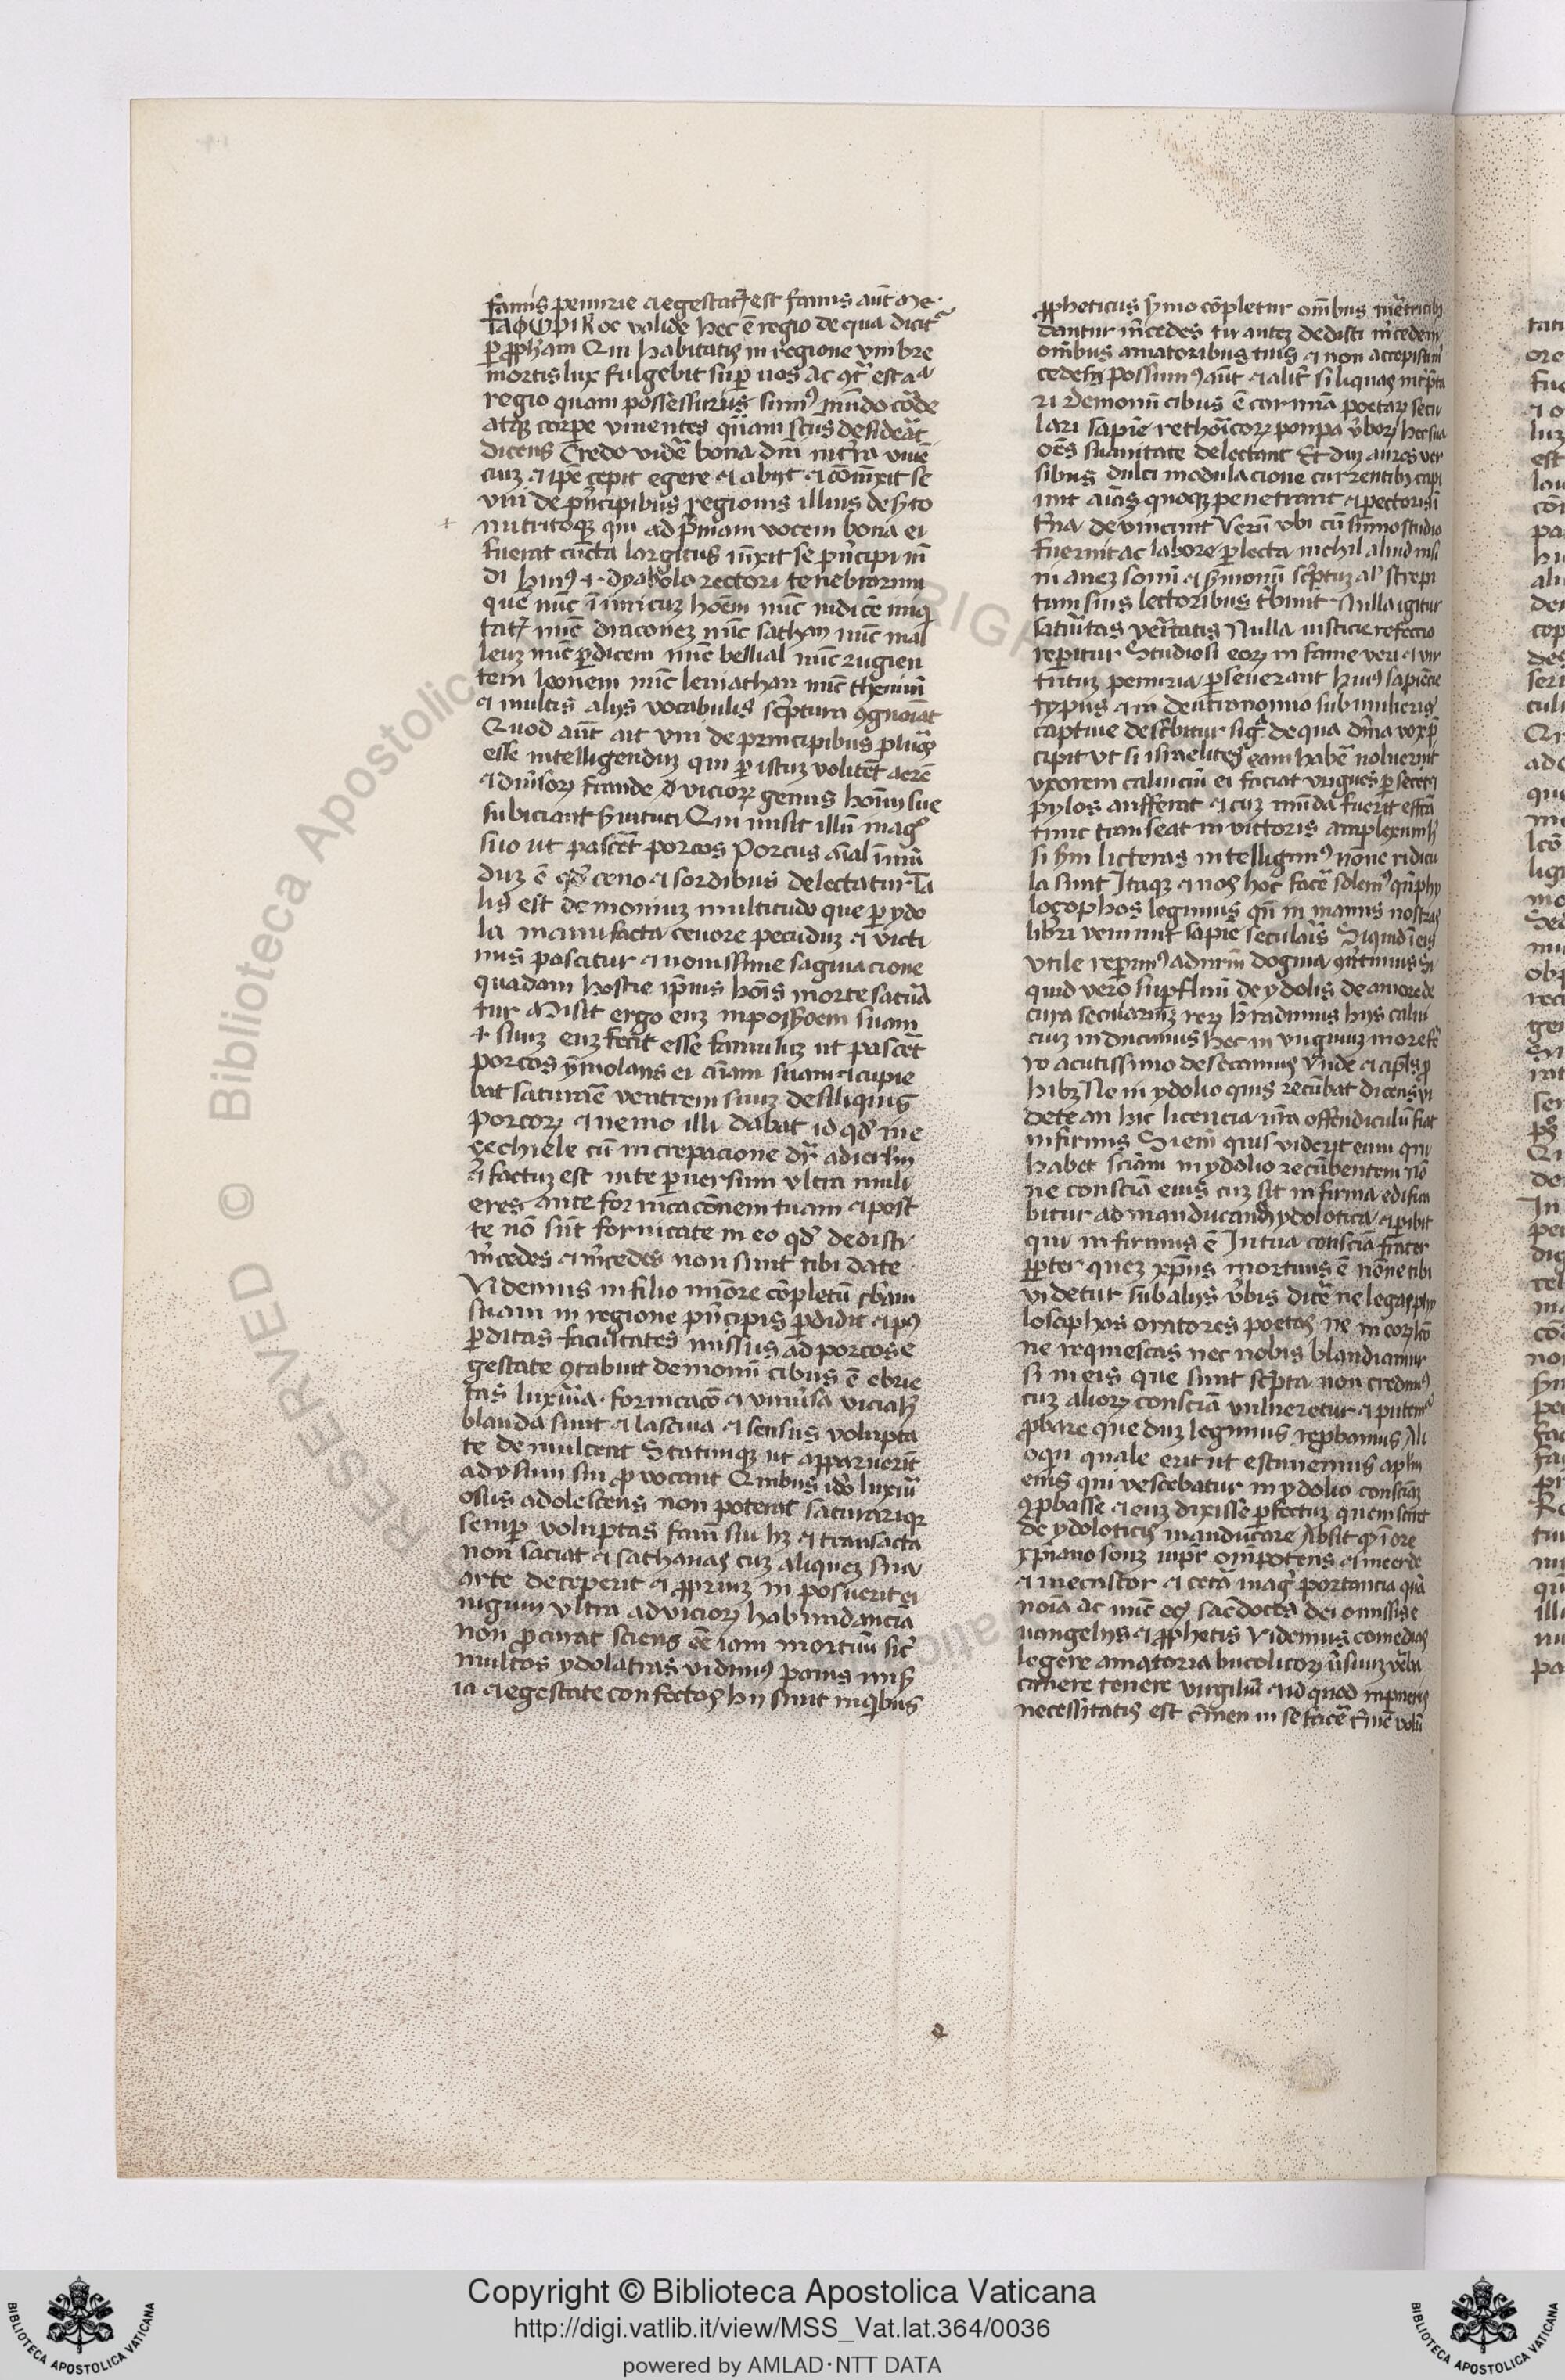 famis penurie et egestatis est famis aut̄ με
ταφωριkoc valide hec ē regio de qua dicit᷑
ꝑ ꝓph̄am Qui habitatis in regione vmbre
mortis lux fulgebit suꝑ uos Ac
regio quam possessurus sumꝰ mūdo corde
atqꝫ corpe viuentes quam sc̄us desiderat
dicens Credo videre bona dnī in terra viuē
cium et ip̄e cepit egere et abijt et coniūxit se
vni de pn̄cipibus regionis illius deserto
nutritoqꝫ qui ad primam vocem bona ei
fuerat cūcta largitus iūxit se pn̄cipi mū
di huiꝰ .i. dyabolo rectori tenebrarum
quē nūc inimicuꝫ hoēm nūc iudicē iniqi
tatꝭ nūc draconeꝫ nūc sathan nūc mal
leuꝫ nūc ꝑdicem nūc bellial nūc rugien
tem leonem nūc leuiathan nūc
et multis alijs vocabulis scptura
Quod aūt ait vni de principibus plures
esse intelligenduꝫ qui ꝑ istuꝫ volitēt aerē
et diuersorꝫ fraude et viciorꝫ genus hominū sue
subiciant seruituti Qui misit illū in agꝝ
suo ut pascet porcos Porcus aīal īmū
duꝫ ē qd̄ ceno et sordibus delectatur Ta
lis est demoniuꝫ multitudo que ꝑ ydo
la manufacta cruore pecuduꝫ et victi
mis pascitur et nouissime saginacione
quadam hostie ip̄ius hoīs morte satura
tur Misit ergo euꝫ in possessionem suam
.i. suuꝫ euꝫ fecit esse famuluꝫ ut pascet
porcos ymolans ei aīam suam et cupie
bat saturare ventrem suuꝫ de siliquis
porcorꝫ et nemo illi dabat id qd̄ in e
zechiele cū increpacione dr̄ ad ierlm̄
et factuꝫ est in te ꝑuersum vltra muli
eres ante fornicacōnem tuam et post
te nō sūt fornicate in eo qd̄ dedisti
m̄cedes et m̄cedes non sunt tibi date
Videmus in filio minore cōpletū sb̄am
suam in regione pn̄cipis ꝑdidit et pꝰ
ꝑditas facultates missus ad porcos e
gestate ꝯtabuit demonū cibus ē ebrie
tas luxuria fornicacō et vniuersa vicia
blanda sunt et lasciua et sensus volupta
te demulcent Statimqꝫ ut apparuerīt
ad vsum sui ꝓuocant Quibus iō luxuri
osus adolescens non poterat saturari qꝛ
semꝑ voluptas famē sui hꝫ et transacta
non saciat et sathanas cuꝫ aliqueꝫ sua
arte deceperit et ꝓpriuꝫ imposuerit ei
iugum vltra ad viciorꝫ habundancia
non ꝓcurat sciens eē iam mortuū sic̄
multos ydolatras vidimꝰ panis mise
ia et egestate confectos hii sunt in qibus
ꝓpheticus sermo cōpletur omībus meretricibꝫ
dantur m̄cedes tu auteꝫ dedisti m̄cedem
omībus amatoribus tuis et non accepisti m̄
cedem possumꝰ aūt et alit̄ siliquas int̄pta
ri Demonū cibus ē carmīa poetarꝫ secu
laris sapiē rethoricorꝫ pompa v̄borꝫ hec sua
oēs suauitate delectant Et duꝫ aures ver
sibus dulci modulacione currentibꝫ capi
unt aīas quoqꝫ penetrant et pectoris ī
tn̄a deuinciunt Verū vbi cū sūmo studio
fuerint ac labore ꝑlecta nichil aliud nisi
inaneꝫ sonū et sermonū sc̄ptuꝫ al' strepi
tum suis lectoribus t̄bunt Nulla igitur
saturitas veritatis Nulla iusticie refectio
reꝑitur Studiosi eorꝫ in fame veri et vir
tutuꝫ penuria ꝑseuerant huiꝰ sapiēcie
typus et in deutronomio sub mulieris
captiue describitur figura de qua diuina vox pre
cipit vt si israelites eam habere voluerit
vxorem caluiciū ei faciat vngues ꝑsecet et
pylos aufferat et cuꝫ mūda fuerit effcā
tunc transeat in victoris amplexum h̄
si sm̄ licteras intelligimꝰ nōne ridicu
la sunt Itaqꝫ et nos hoc facere solemꝰ qn̄ phy
losophos legimus qn̄ in manus nostras
libri veniunt sapiē secularis Si quid ī eis
vtile reperimꝰ ad nr̄m dogma ꝯuertimus Si
quid vero suꝑfluū de ydolis de amore de
cura seculariuꝫ rerꝫ h̄ radimus hijs calui
cium inducimus hec in vnguium more fer
ro acutissimo desecamus Vnde et apls ꝓ
hibꝫ Ne in ydolio quis recūbat dicens vi
dete an hic licencia vr̄a offendiculū fiat
infirmis Si em̄ quis viderit eum qui
habet sciam in ydolio recūbentem nō
ne consciā eius cuꝫ sit infirma edifica
bitur ad manducandū ydolotica et ꝑibit
qui infirmus ē In tua consciā frater
ꝓpter queꝫ xp̄us mortuus ē nōne tibi
videtur sub alijs v̄bis dicere ne legas phy
losophos oratores poetas ne in eorꝫ lcō
ne requiescas nec nobis blandiamur
si in eis que sunt scpta non credimꝰ
cuꝫ aliorꝫ consciā vulneretur et putemꝰ
ꝓbare que duꝫ legimus reꝓbamus Ali
oqui quale erit ut estimemus aplm̄
eius qui vescebatur in ydolio consciaꝫ
ꝯꝓbasse et euꝫ dixisse ꝑfectuꝫ quem sciret
de ydoloticis manducare Absit ꝙ ī ore
xp̄iano sonꝫ iupr̄ omīpotens et mecrde
et mecastor et cetā magis portancia quā
noīa ac nūc eciā sacdotes dei omissis e
uangelijs et ꝓphetis videmus comedias
legere amatoria bucolicorꝫ v̄suuꝫ v̄ba
canere tenere virgiliū et id quod in pueris
necessitatis est crimen in se facere volū
Copyright © Biblioteca Apostolica Vaticana
http://digi.vatlib.it/view/MSS_Vat.lat.364/0036
powered by AMLAD·NTT DATA